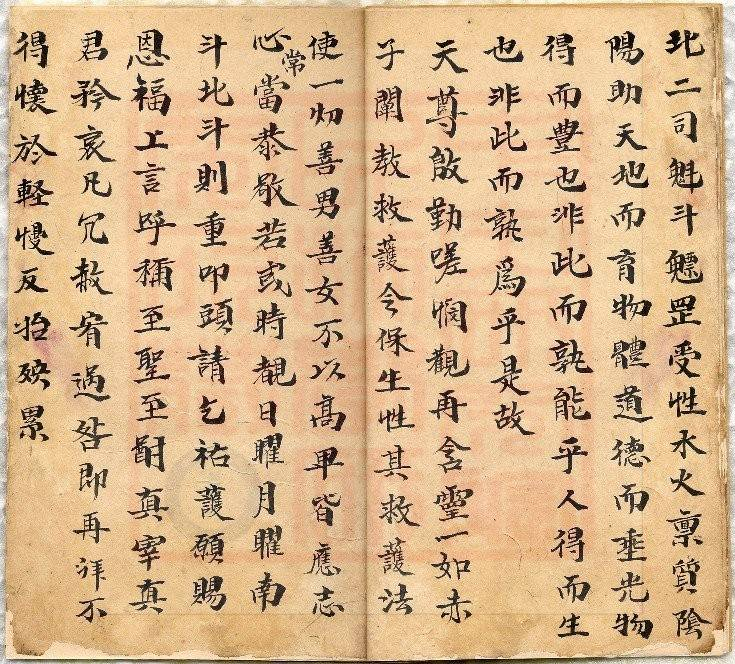 北二司魁斗魒罡受性水火禀質陰
陽助天地而育物體道德而垂光物
得而豊也非此而孰能乎人得而生
也非此而孰爲乎是故
天尊啟勤嗟憫觀再含靈一如赤
子闡教救護令保生性其救護法
使一切善男善女不以高卑皆應志
心常當恭敬若或時覩日曜月曜南
斗北斗則重叩頭請乞祐護願賜
恩福上言呼稱至聖至尉真宰真
君矜哀凡冗赦宥過咎即再拜不
得懷於軽慢反招殃累